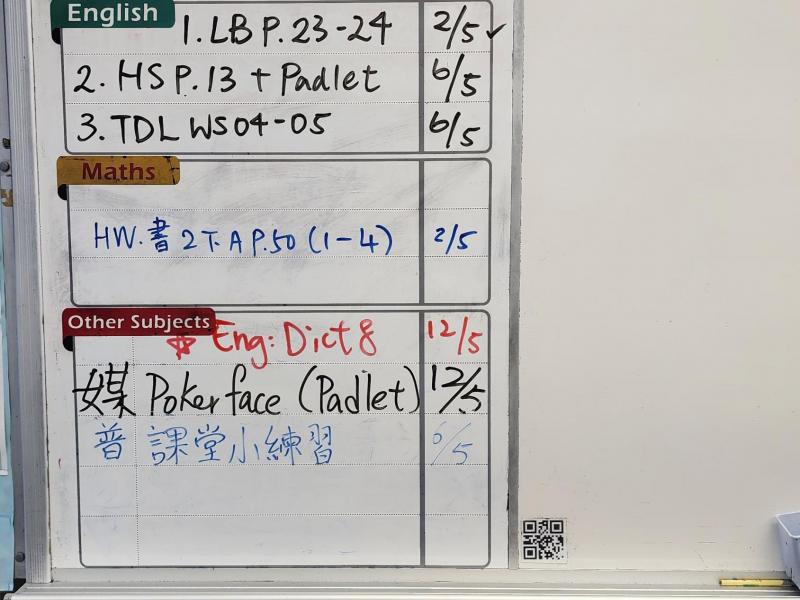 English
1. LB P. 23-24 2/5 ✓
2. HS P. 13 + Padlet 6/5
3. TDL WS04-05 6/5
Maths
HW. 書 2下A P.50 (1-4) 2/5
Other Subjects
Eng: Dict 8 12/5
媒 Pokerface (Padlet) 12/5
普 課堂小練習 6/5